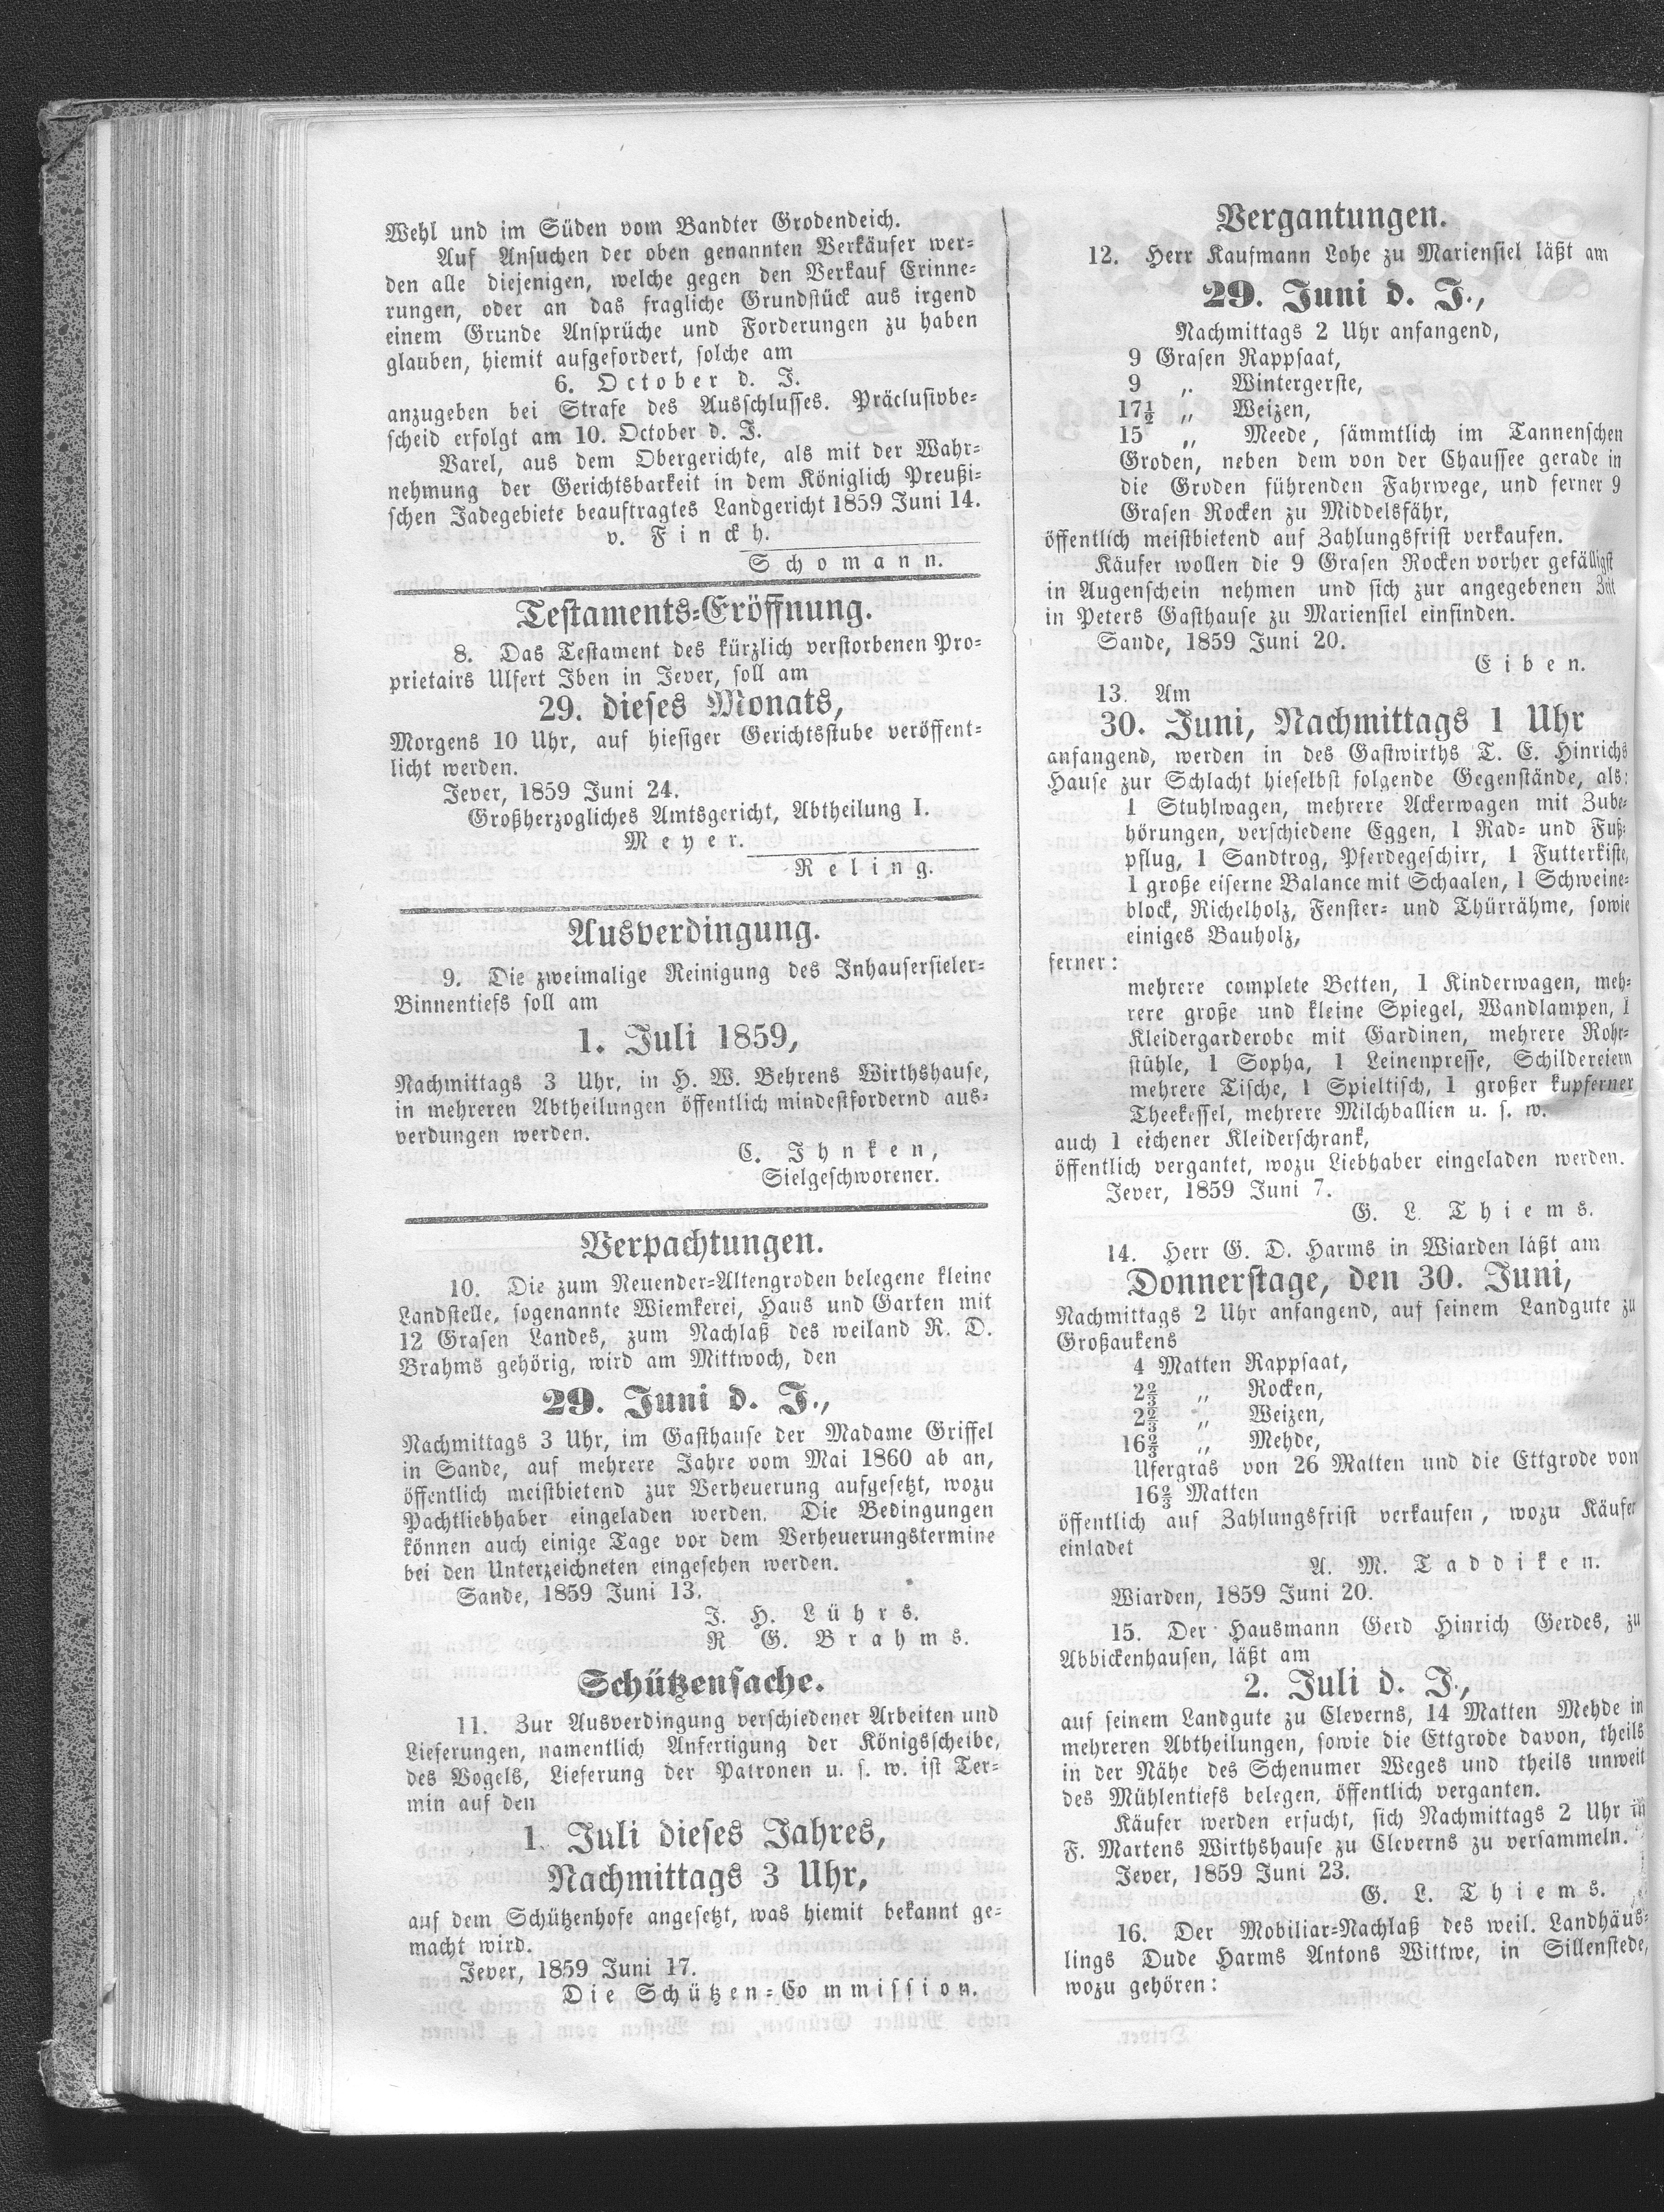 Wehl und im Süden vom Bandter Grodendeich.
Auf Ansuchen der oben genannten Verkäufer wer-
den alle diejenigen, welche gegen den Verkauf Erinne-
rungen, oder an das fragliche Grundstück aus irgend
einem Grunde Ansprüche und Forderungen zu haben
glauben, hiemit aufgefordert, solche am
6. October d. J.
anzugeben bei Strafe des Ausschlusses. Präclusivbe-
scheid erfolgt am 10. October d. J.
Varel, aus dem Obergerichte, als mit der Wahr-
nehmung der Gerichtsbarkeit in dem Königlich Preußi-
schen Jadegebiete beauftragtes Landgericht 1859 Juni 14.
v. Finckh.
Schomann.
Testaments-Eröffnung.
8. Das Testament des kürzlich verstorbenen Pro-
prietairs Ulfert Iben in Jever, soll am
29. dieses Monats,
Morgens 10 Uhr, auf hiesiger Gerichtsstube veröffent-
licht werden.
Jever, 1859 Juni 24.
Großherzogliches Amtsgericht, Abtheilung I.
Meyer.
Reling.
Ausverdingung.
9. Die zweimalige Reinigung des Inhausersieler-
Binnentiefs soll am
1. Juli 1859,
Nachmittags 3 Uhr, in H. W. Behrens Wirthshause,
in mehreren Abtheilungen öffentlich mindestfordernd aus-
verdungen werden.
C. Ihnken,
Sielgeschworener.
Verpachtungen.
10. Die zum Neuender-Altengroden belegene kleine
Landstelle, sogenannte Wiemkerei, Haus und Garten mit
12 Grasen Landes, zum Nachlaß des weiland R. D.
Brahms gehörig, wird am Mittwoch, den
29. Juni d. J.,
Nachmittags 3 Uhr, im Gasthause der Madame Griffel
in Sande, auf mehrere Jahre vom Mai 1860 ab an,
öffentlich meistbietend zur Verheuerung aufgesetzt, wozu
Pachtliebhaber eingeladen werden. Die Bedingungen
können auch einige Tage vor dem Verheuerungstermine
bei den Unterzeichneten eingesehen werden.
Sande, 1859 Juni 13.
J. H. Lührs.
R. G. Brahms.
Schützensache.
11. Zur Ausverdingung verschiedener Arbeiten und
Lieferungen, namentlich Anfertigung der Königsscheibe,
des Vogels, Lieferung der Patronen u. s. w. ist Ter-
min auf den
1. Juli dieses Jahres,
Nachmittags 3 Uhr,
auf dem Schützenhofe angesetzt, was hiemit bekannt ge-
macht wird.
Jever, 1859 Juni 17.
Die Schützen-Commission.
Vergantungen.
12. Herr Kaufmann Lohe zu Mariensiel läßt am
29. Juni d. J.,
Nachmittags 2 Uhr anfangend,
9 Grasen Rappsaat,
9 „ Wintergerste,
17½ „ Weizen,
15 „ Meede, sämmtlich im Tannenschen
Groden, neben dem von der Chaussee gerade in
die Groden führenden Fahrwege, und ferner 9
Grasen Rocken zu Middelsfähr,
öffentlich meistbietend auf Zahlungsfrist verkaufen.
Käufer wollen die 9 Grasen Rocken vorher gefälligst
in Augenschein nehmen und sich zur angegebenen Zeit
in Peters Gasthause zu Mariensiel einfinden.
Sande, 1859 Juni 20.
Eiben.
13. Am
30. Juni, Nachmittags 1 Uhr
anfangend, werden in des Gastwirths T. E. Hinrichs
Hause zur Schlacht hieselbst folgende Gegenstände, als:
1 Stuhlwagen, mehrere Ackerwagen mit Zube-
hörungen, verschiedene Eggen, 1 Rad- und Fuß-
pflug, 1 Sandtrog, Pferdegeschirr, 1 Futterkiste,
1 große eiserne Balance mit Schaalen, 1 Schweine-
block, Richelholz, Fenster- und Thürrähme, sowie
einiges Bauholz,
ferner:
mehrere complete Betten, 1 Kinderwagen, meh-
rere große und kleine Spiegel, Wandlampen, 1
Kleidergarderobe mit Gardinen, mehrere Rohr-
stühle, 1 Sopha, 1 Leinenpresse, Schildereien
mehrere Tische, 1 Spieltisch, 1 großer kupferner
Theekessel, mehrere Milchballien u. s. w.
auch 1 eichener Kleiderschrank,
öffentlich vergantet, wozu Liebhaber eingeladen werden.
Jever, 1859 Juni 7.
G. L. Thiems.
14. Herr G. D. Harms in Wiarden läßt am
Donnerstage, den 30. Juni,
Nachmittags 2 Uhr anfangend, auf seinem Landgute zu
Großaukens
4 Matten Rappsaat,
2⅔ „ Rocken,
2⅔ „ Weizen,
16⅔ „ Mehde,
Ufergras von 26 Matten und die Ettgrode von
16⅔ Matten
öffentlich auf Zahlungsfrist verkaufen, wozu Käufer
einladet
A. M. Taddiken.
Wiarden, 1859 Juni 20.
15. Der Hausmann Gerd Hinrich Gerdes, zu
Abbickenhausen, läßt am
2. Juli d. J.,
auf seinem Landgute zu Cleverns, 14 Matten Mehde in
mehreren Abtheilungen, sowie die Ettgrode davon, theils
in der Nähe des Schenumer Weges und theils unweit
des Mühlentiefs belegen, öffentlich verganten.
Käufer werden ersucht, sich Nachmittags 2 Uhr in
F. Martens Wirthshause zu Cleverns zu versammeln.
Jever, 1859 Juni 23.
G. L. Thiems.
16. Der Mobiliar-Nachlaß des weil. Landhäus-
lings Dude Harms Antons Wittwe, in Sillenstede,
wozu gehören: